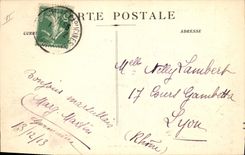 CARTE POSTALE
ADRESSE
Melle Nelly Lambert
17 Cours Gambetta
Lyon
Rhône
Bonjours marseillais
Marg. Martin
18/12/13